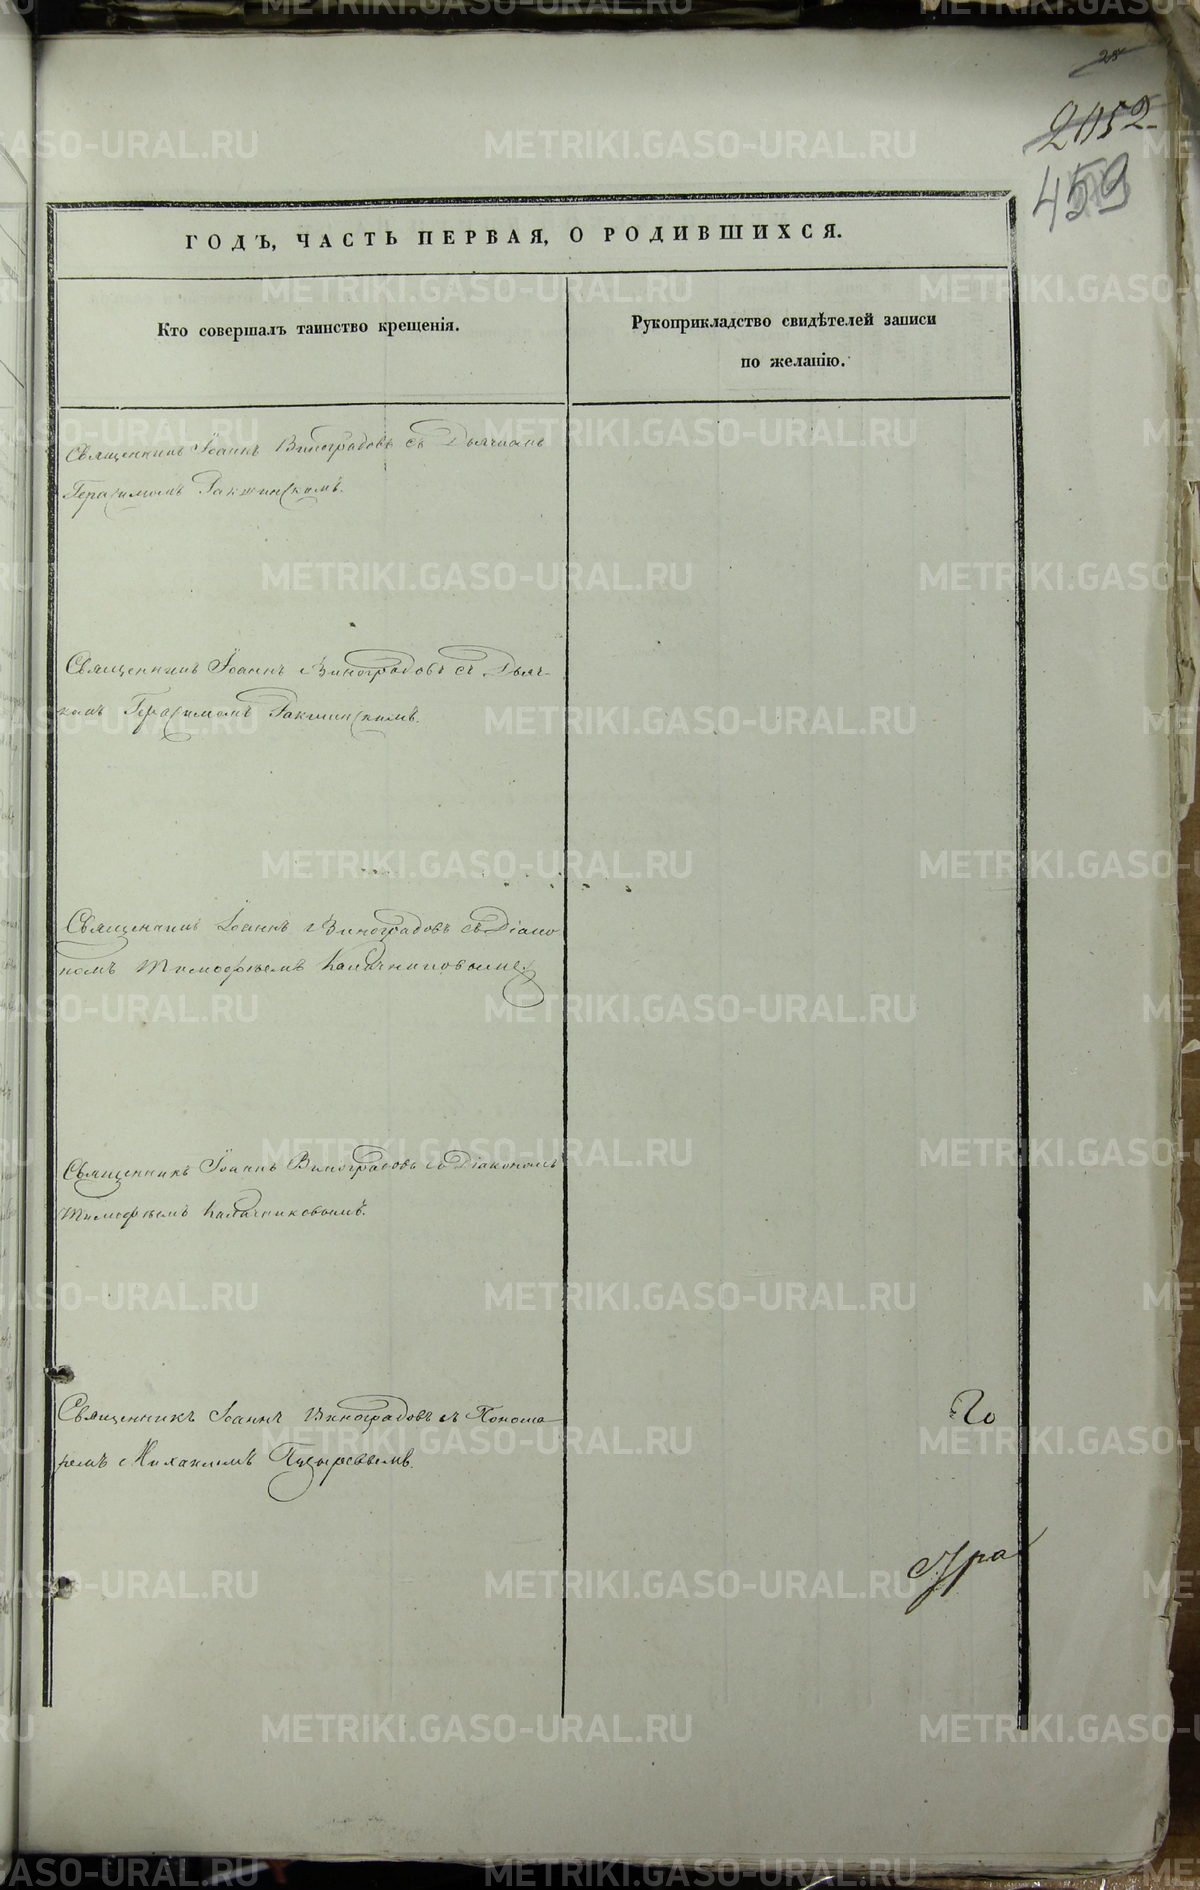 25
2052
459
ГОДЪ, ЧАСТЬ ПЕРВАЯ, О РОДИВШИХСЯ.
Кто совершалъ таинство крещенія.
Рукоприкладство свидѣтелей записи
по желанію.
Священникъ Іоаннъ Виноградовъ съ Дьячкомъ
Герасимомъ
Священникъ Іоаннъ Виноградовъ съ Дьяч-
комъ Герасимомъ
Священникъ Іоаннъ Виноградовъ съ Діако
номъ Тимофѣемъ Калачниковымъ
Священникъ Іоаннъ Виноградовъ съ Діакономъ
Тимофѣемъ Калачниковымъ.
Священникъ Іоаннъ Виноградовъ съ Понома
ремъ Михаиломъ Пузыревымъ.
METRIKI.GASO-URAL.RU